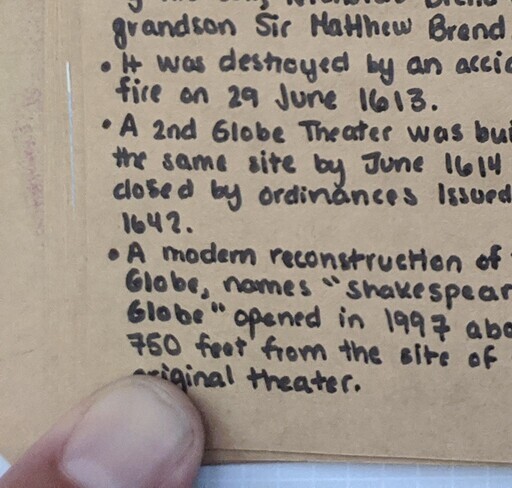 grandson Sir Matthew Brand
• It was destroyed by an accid
fire on 29 June 1613.
• A 2nd Globe Theater was bui
the same site by June 1614
closed by ordinances Issued
1642.
• A modern reconstruction of
Globe, names "Shakespear
Globe" opened in 1997 abo
750 feet from the site of
original theater.